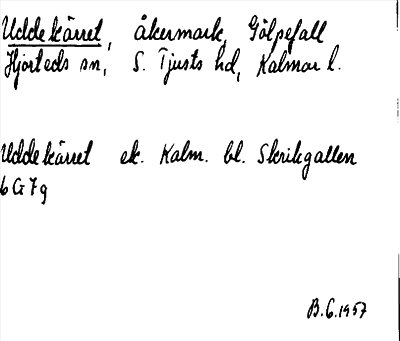 Uddekärret, åkermark, Gölpefall
Hjorteds sn, S. Tjusts hd, Kalmar l.
Uddekärret ek. Kalm. bl. Skrikgallen
6 G 7 g
B.G. 1957